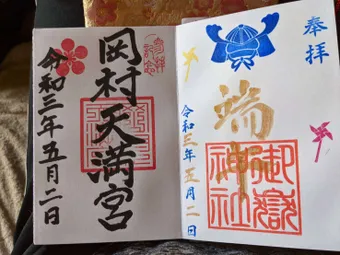 奉拝
端午
御嶽
神社
令和三年五月二日
岡村天満宮
令和三年五月二日